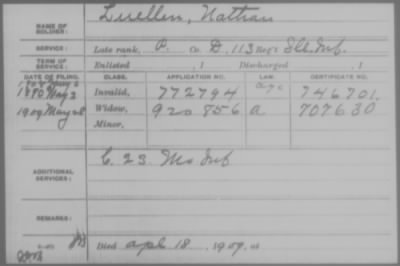 NAME OF SOLDIER: Lisellen, Nathan
SERVICE: Late rank, P. Co. D, 113 Reg't Ill. Inf.
TERM OF SERVICE: Enlisted , 1 Discharged , 1
DATE OF FILING. CLASS. APPLICATION NO. LAW. CERTIFICATE NO.
1890 May 2 Invalid, 772794 746701.
1909 May 28 Widow, 920856 a 707630
Minor,
ADDITIONAL SERVICES: C. 23 Mo Inf
REMARKS:
Died Apl. 18, 1909, at